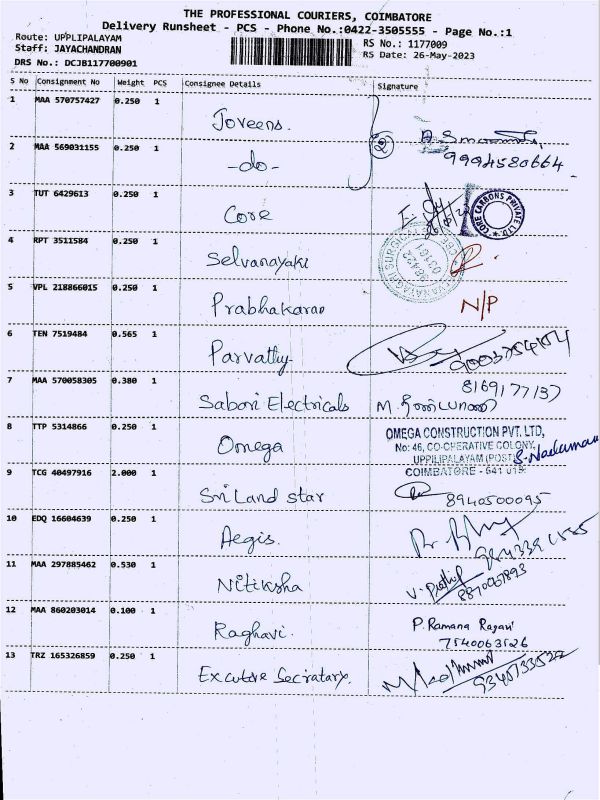 THE PROFESSIONAL COURIERS, COIMBATORE
Delivery Runsheet - PCS - Phone No.:0422-3505555 - Page No.:1
Route: UPPLIPALAYAM
Staff: JAYACHANDRAN
RS No.: 1177009
RS Date: 26-May-2023
DRS No.: DCJB117700901
S No Consignment No Weight PCS Consignee Details Signature
1 MAA 570757427 0.250 1 Joveens.
2 MAA 569031155 0.250 1 -do- 2 9994580664
3 TUT 6429613 0.250 1 Core CORE CARBONS PRIVATE LTD.
4 RPT 3511584 0.250 1 Selvanayaki
5 VPL 218866015 0.250 1 Prabhakaran N/P
6 TEN 7519484 0.565 1 Parvathy
7 MAA 570058305 0.380 1 Sabari Electricals 8169177137
8 TTP 5314866 0.250 1 Omega OMEGA CONSTRUCTION PVT. LTD,
No: 46, CO-OPERATIVE COLONY,
UPPILIPALAYAM (POST)
COIMBATORE - 641 015
9 TCG 40497916 2.000 1 Sri Land star 8940500095
10 EDQ 16604639 0.250 1 Aegis.
11 MAA 297885462 0.530 1 Nitiksha
12 MAA 860203014 0.100 1 Raghavi. P. Ramana Ragavi
7540063526
13 TRZ 165326859 0.250 1 Excutive Secriatary.